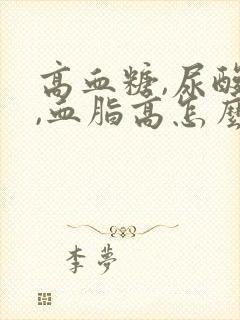 高血糖,尿酸
,血脂高怎麼
李夢